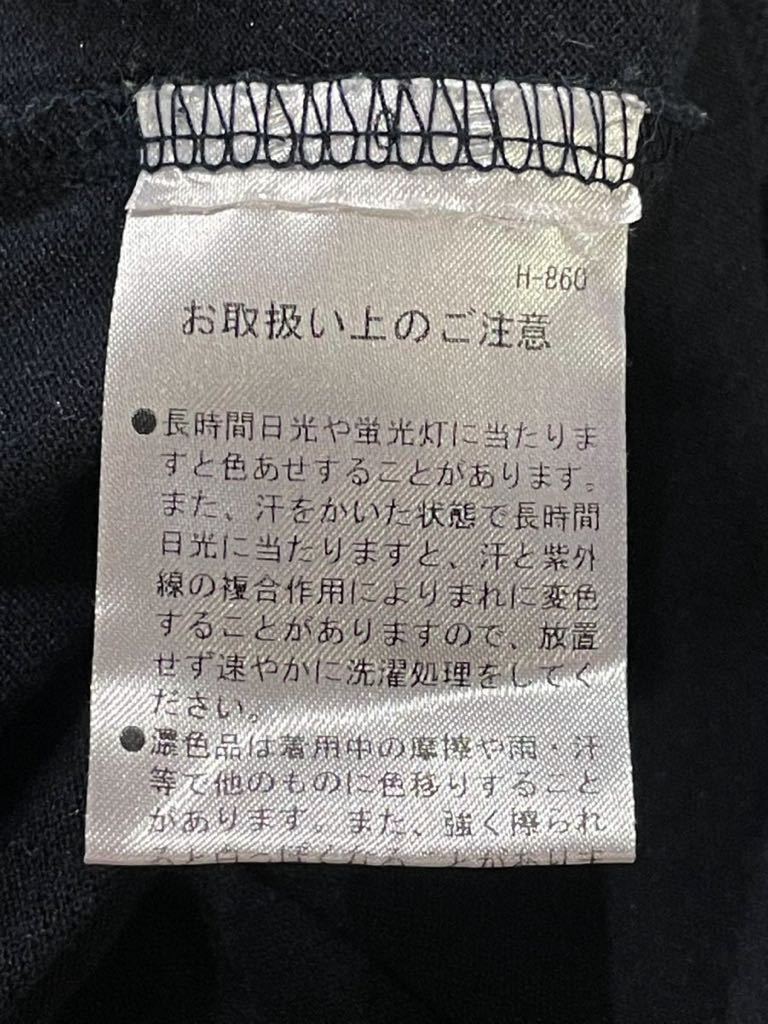 H-860
お取扱い上のご注意
●長時間日光や蛍光灯に当たりま
すと色あせすることがあります。
また、汗をかいた状態で長時間
日光に当たりますと、汗と紫外
線の複合作用によりまれに変色
することがありますので、放置
せず速やかに洗濯処理をしてく
ださい。
●濃色品は着用中の摩擦や雨・汗
等で他のものに色移りすること
があります。また、強く擦られ
ると白っぽくなることがありま